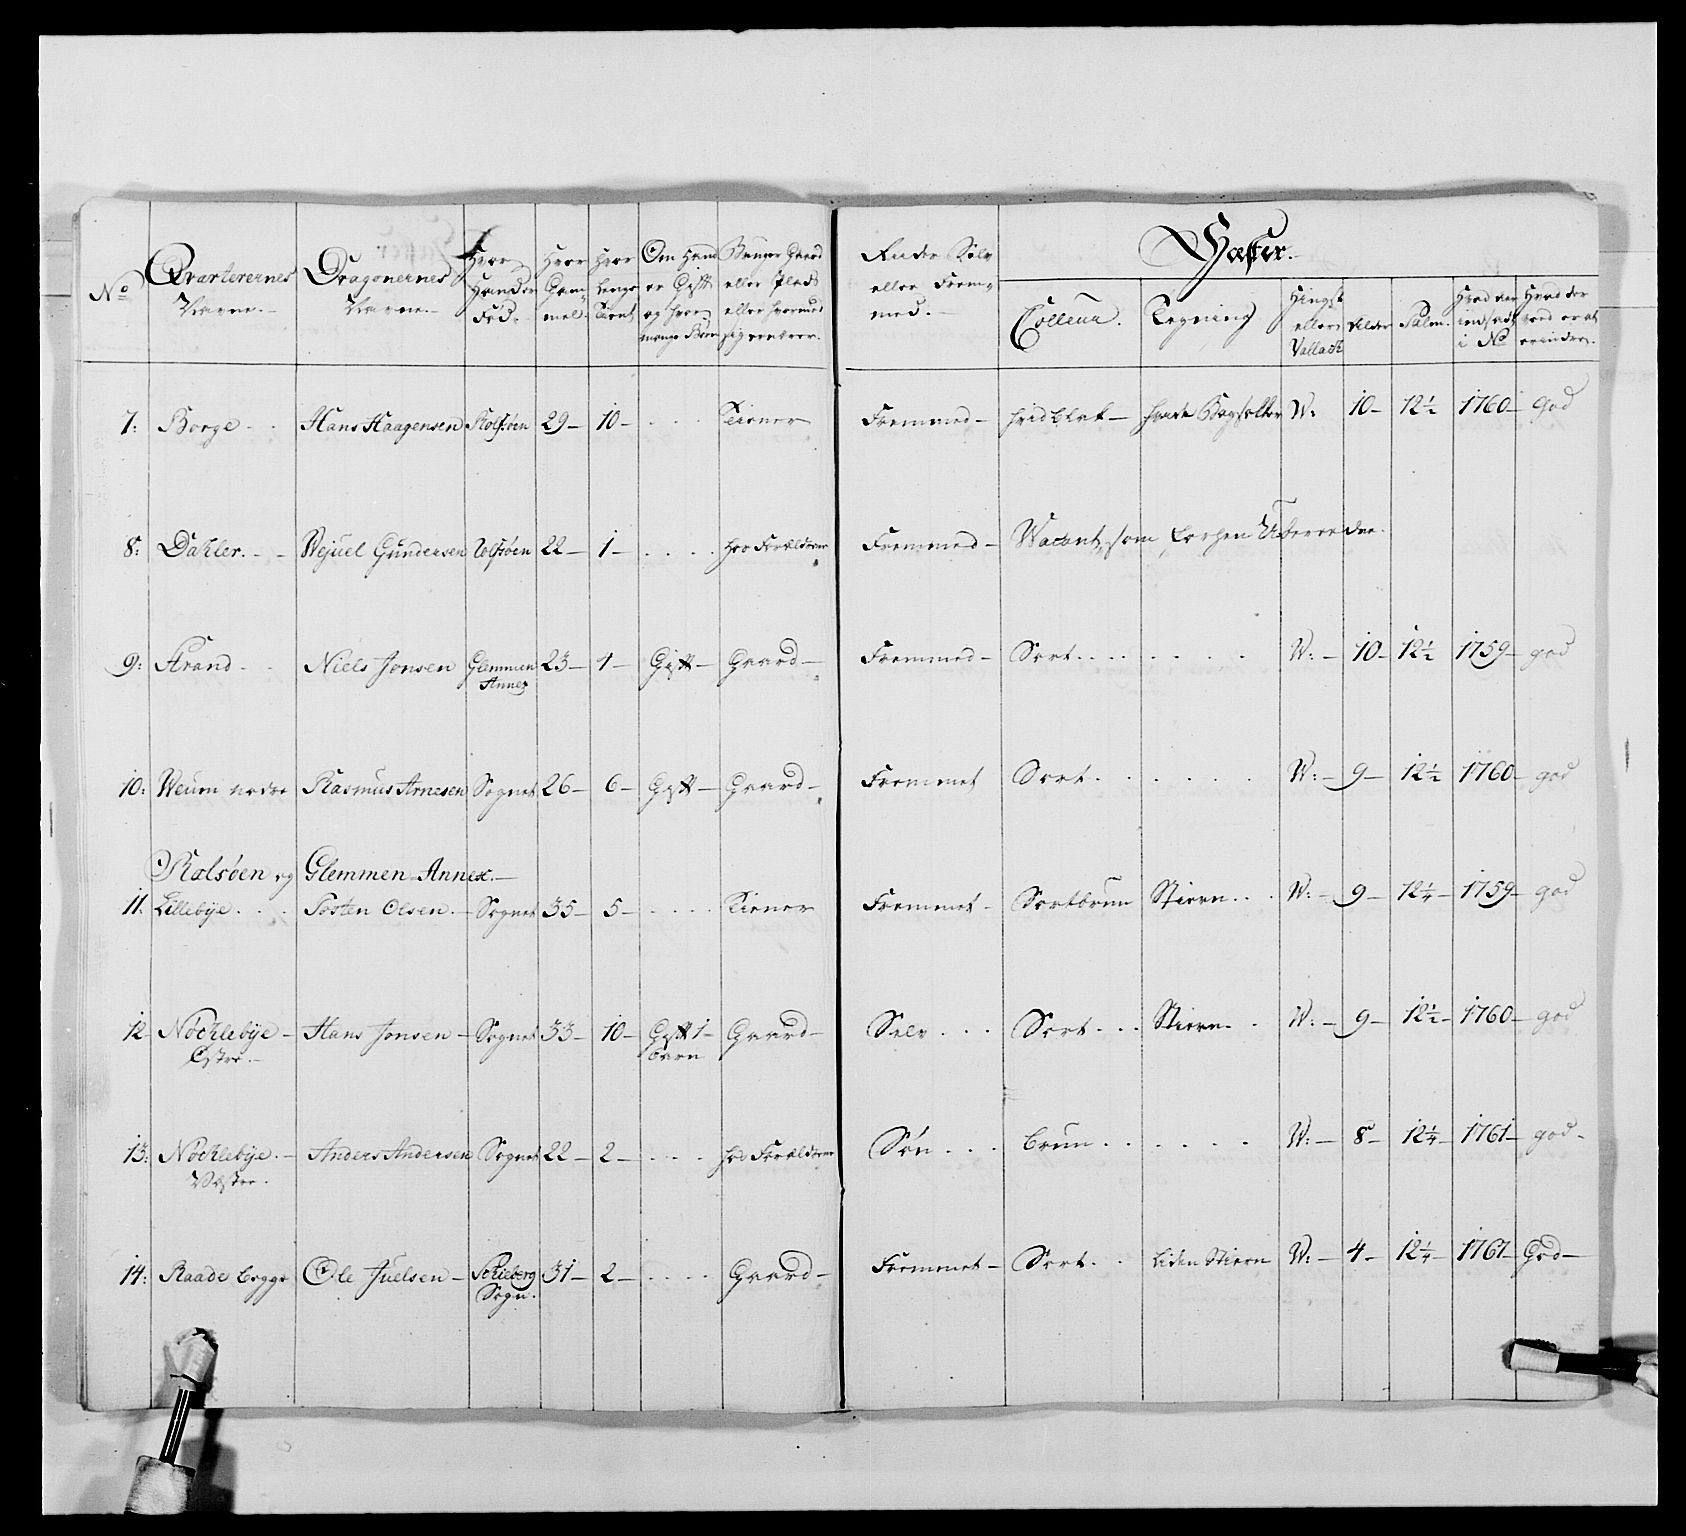 No Qvarterernes Navne. Dragonernes Navne. Hvor Hand er Fød. Hvor Gammel. Hvor Lenge Tient Om Hand er Gift og hvor mange Børn Bruger Gaard eller Plads eller hvormed sig ernærer. Ander Selv eller Fremmed. Hæster.
Colleur. Tegning Hingst eller Vallack Alder Palm. Hvad Aar indsadt i No Hvad der ved er at erindre.
7: Borge Hans Haagensen Rolfsøen 29 10 Tiener Fremmed hvidblak W: 10 12½ 1760 God
8: Dahler Wejuel Gundersen Rolfsøen 22 1 hos Forældrene Fremmed Vacant, som
9: Strand Niels Jonsen Glemmen Annex 23 4 Gift Gaard Fremmed Sort W: 10 12½ 1759 god
10: Weum nedre Rasmus Arnesen Sognet 26 6 Gift Gaard Fremmet Sort W: 9 12½ 1760 god
Rolsøen og Glemmen Annex.
11. Lillebye Tosten Olsen Sognet 35 5 Tiener Fremmet Sortbrun Stiern W: 9 12¼ 1759 god
12 Nöcklebye Østre Hans Jonsen Sognet 33 10 Gift 1 barn Gaard Selv Sort Stiern W: 9 12½ 1760 god
13: Nöcklebye Vestre Anders Andersen Sognet 22 2 hos Forældrene Søn brun W: 8 12¼ 1761 god
14: Raade begge Ole Juelsen Schieberg Sogn. 31 2 Gaard Fremmet Sort Liden Stiern W: 4 12¼ 1761 God